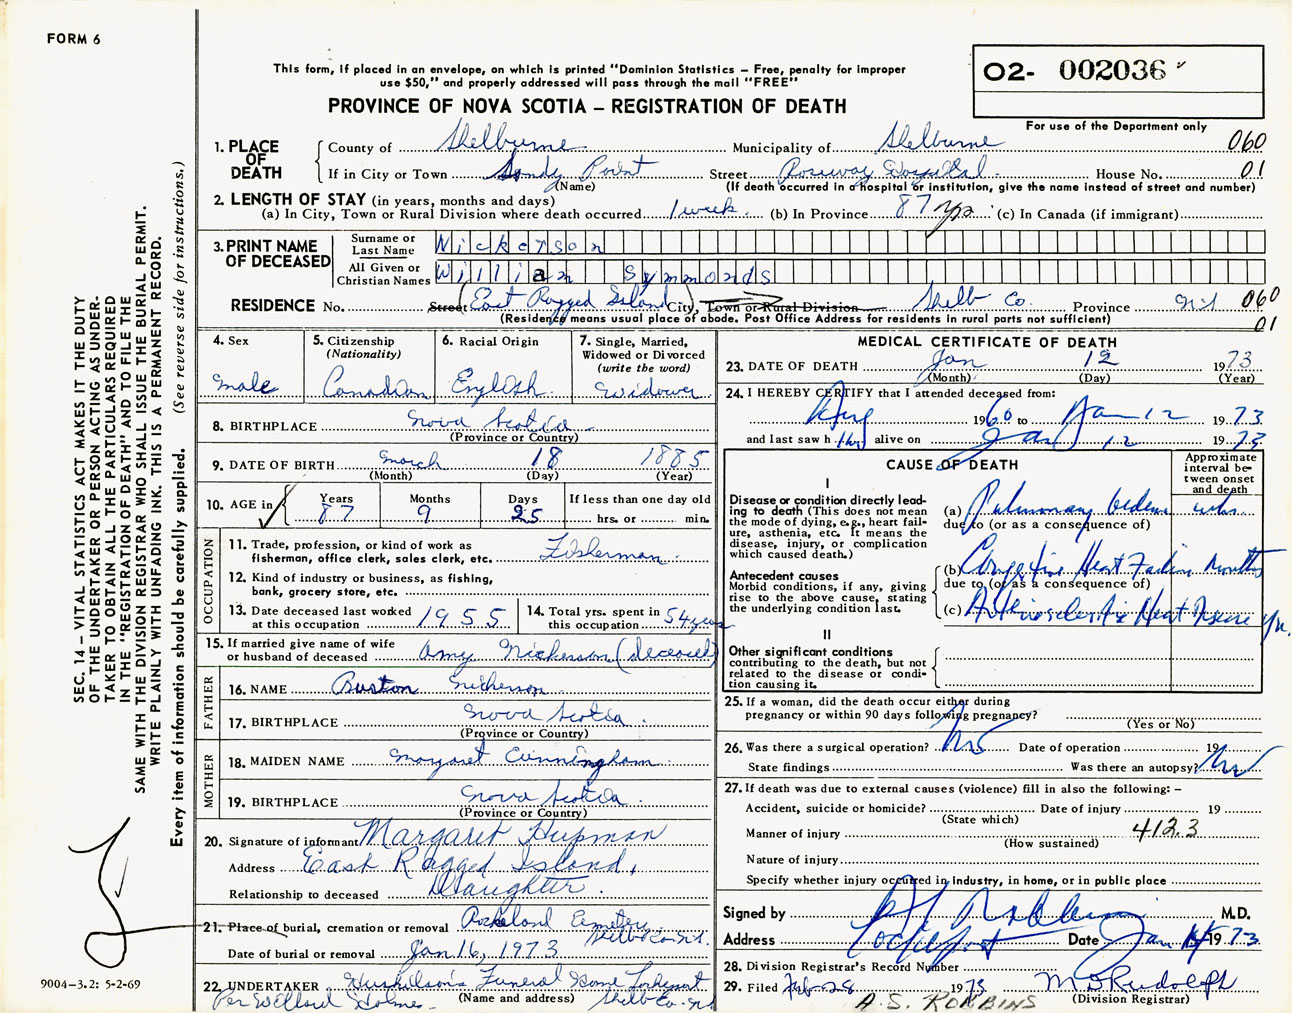 FORM 6
This form, if placed in an envelope, on which is printed "Dominion Statistics – Free, penalty for improper
use $50," and properly addressed will pass through the mail "FREE"
PROVINCE OF NOVA SCOTIA – REGISTRATION OF DEATH
02- 002036
For use of the Department only
1. PLACE OF DEATH County of Shelburne Municipality of Shelburne 060
If in City or Town Sandy Point Street Roseway Hospital House No. 01
(Name) (If death occurred in a hospital or institution, give the name instead of street and number)
2. LENGTH OF STAY (in years, months and days)
(a) In City, Town or Rural Division where death occurred 1 week. (b) In Province 87 yrs. (c) In Canada (if immigrant)
3. PRINT NAME OF DECEASED
Surname or Last Name Nickerson
All Given or Christian Names William Symmonds
RESIDENCE No. Street (East Ragged Island) City, Town or Rural Division Shelb Co. Province N.S 060
(Residence means usual place of abode. Post Office Address for residents in rural parts not sufficient) 01
4. Sex Male
5. Citizenship (Nationality) Canadian
6. Racial Origin English
7. Single, Married, Widowed or Divorced (write the word) Widower
8. BIRTHPLACE Nova Scotia
(Province or Country)
9. DATE OF BIRTH March 18 1885
(Month) (Day) (Year)
10. AGE in Years 87 Months 9 Days 25 If less than one day old hrs. or min.
OCCUPATION
11. Trade, profession, or kind of work as
fisherman, office clerk, sales clerk, etc. Fisherman.
12. Kind of industry or business, as fishing,
bank, grocery store, etc.
13. Date deceased last worked
at this occupation 1955
14. Total yrs. spent in
this occupation 54 years
15. If married give name of wife
or husband of deceased Amy Nickerson (deceased)
FATHER
16. NAME Burton Nickerson
17. BIRTHPLACE Nova Scotia.
(Province or Country)
MOTHER
18. MAIDEN NAME Margaret Cunningham
19. BIRTHPLACE Nova Scotia.
(Province or Country)
20. Signature of informant Margaret Hupman
Address East Ragged Island,
Relationship to deceased Daughter.
21. Place of burial, cremation or removal Rockland Cemetery
Shelb Co. N.S.
Date of burial or removal Jan 16, 1973
22. UNDERTAKER Huskilson's Funeral Home Lockeport
(Name and address) Shelb Co. N.S
Per Willard Holmes
MEDICAL CERTIFICATE OF DEATH
23. DATE OF DEATH Jan 12 1973
(Month) (Day) (Year)
24. I HEREBY CERTIFY that I attended deceased from:
Aug 1960 to Jan 12 1973
and last saw h im alive on Jan 12 1973
CAUSE OF DEATH
Approximate interval between onset and death
I
Disease or condition directly leading to death (This does not mean
the mode of dying, e.g., heart failure, asthenia, etc. It means the
disease, injury, or complication
which caused death.)
(a) Pulmonary Oedema
due to (or as a consequence of)
Antecedent causes
Morbid conditions, if any, giving
rise to the above cause, stating
the underlying condition last.
(b) Congestive Heart Failure months
due to (or as a consequence of)
(c) Arteriosclerotic Heart Disease yrs.
II
Other significant conditions
contributing to the death, but not
related to the disease or condition causing it.
25. If a woman, did the death occur either during
pregnancy or within 90 days following pregnancy?
(Yes or No)
26. Was there a surgical operation? No Date of operation 19
State findings Was there an autopsy? No
27. If death was due to external causes (violence) fill in also the following: –
Accident, suicide or homicide? Date of injury 19
(State which)
Manner of injury 412.3
(How sustained)
Nature of injury
Specify whether injury occurred in industry, in home, or in public place
Signed by M.D.
Address Lockeport Date Jan 14 1973
28. Division Registrar's Record Number
29. Filed Feb-28 1973 M D Rudolph
(Division Registrar)
A.S. ROBBINS
SEC. 14 – VITAL STATISTICS ACT MAKES IT THE DUTY
OF THE UNDERTAKER OR PERSON ACTING AS UNDER-
TAKER TO OBTAIN ALL THE PARTICULARS REQUIRED
IN THE "REGISTRATION OF DEATH" AND TO FILE THE
SAME WITH THE DIVISION REGISTRAR WHO SHALL ISSUE THE BURIAL PERMIT.
WRITE PLAINLY WITH UNFADING INK. THIS IS A PERMANENT RECORD.
Every item of information should be carefully supplied. (See reverse side for instructions.)
9004-3.2: 5-2-69